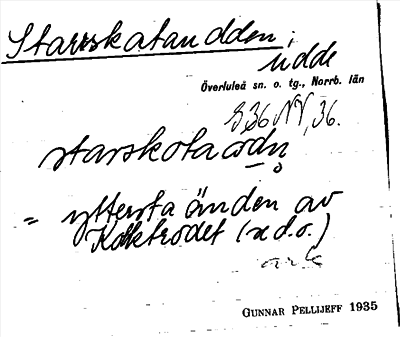 Starrskataudden;
udde
Överluleå sn. o. tg., Norrb. län
36 NV, 36.
starskota
= yttersta änden av
(x d.o.)
ark
GUNNAR PELLIJEFF 1935